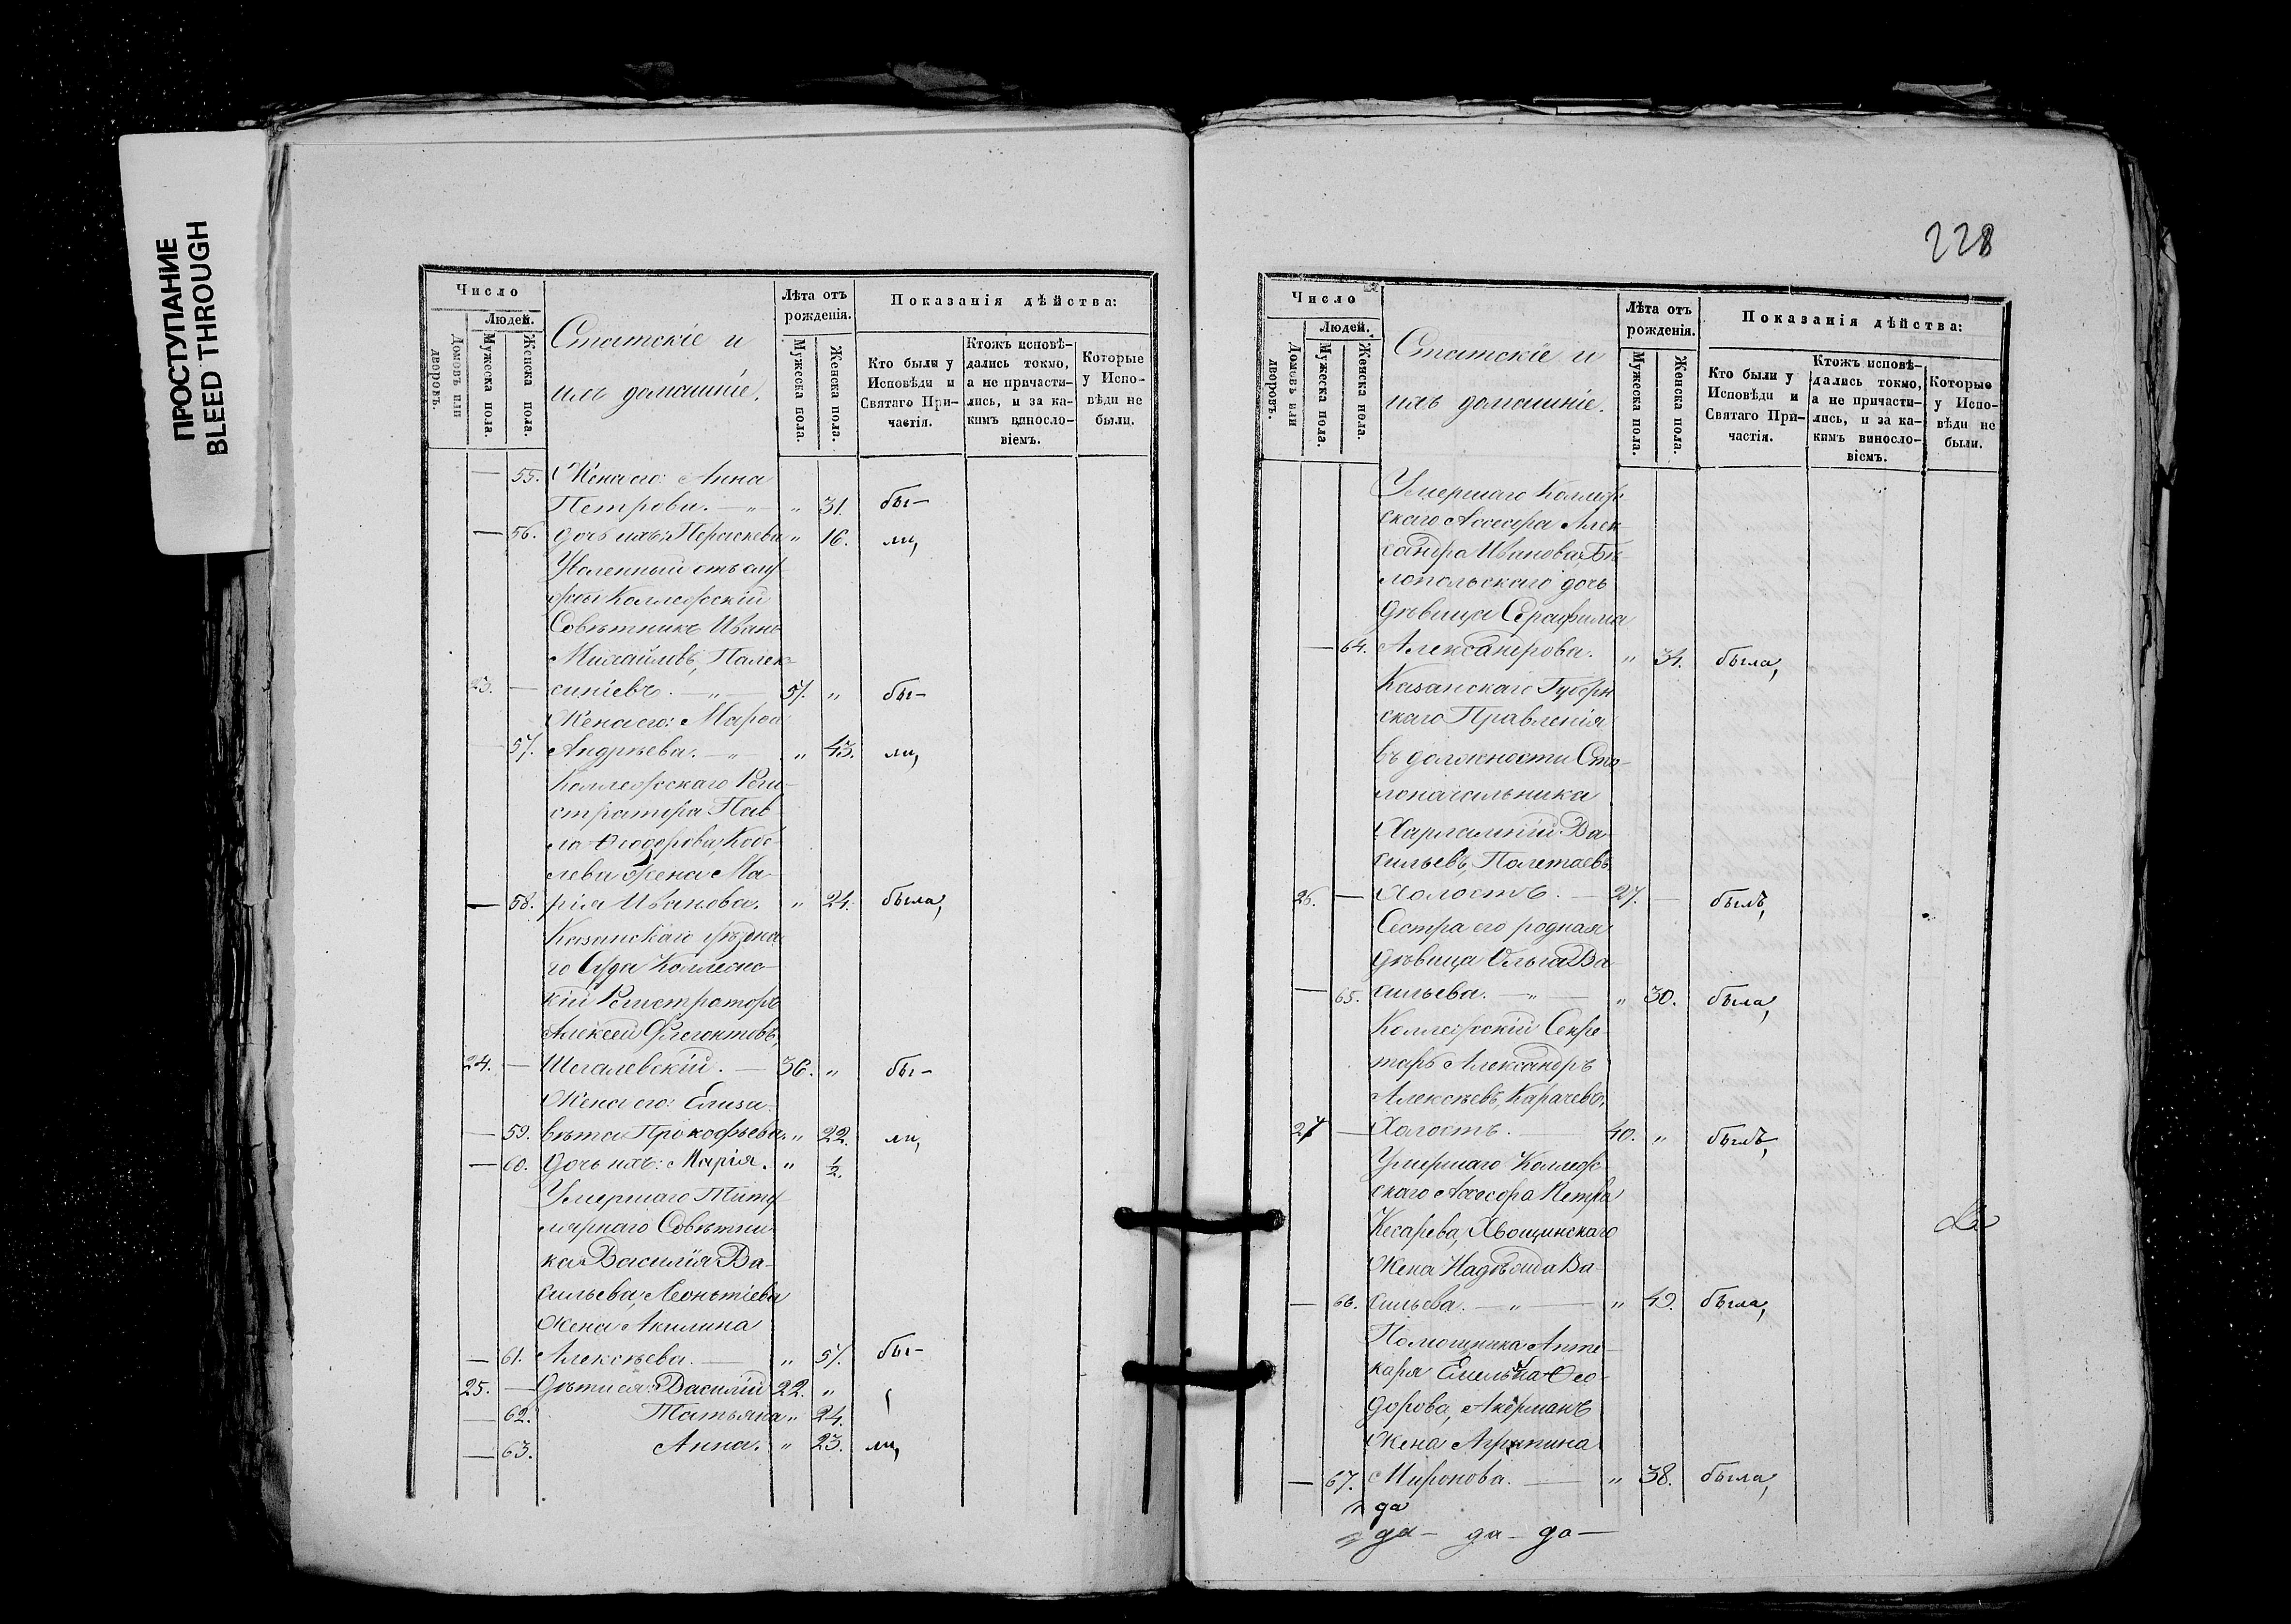 ПРОСТУПАНИЕ
BLEED THROUGH
Число
Людей.
Домовъ или дворовъ.
Мужеска пола.
Женска пола.
Статскіе и
ихъ домашніе.
Лѣта отъ рожденія.
Мужеска пола.
Женска пола.
Показанія дѣйства:
Кто были у Исповѣди и Святаго Причастія.
Ктожъ исповѣдались токмо, а не причастились, и за какимъ винословіемъ.
Которые у Исповѣди не были.
— 55. Жена его: Анна
Петрова. — „ — „ 31. бы-
— 56. дочь ихъ: Параскева „ 16. ли,
Уволенный отъ слу-
жбы Коллежскій
Совѣтникъ Иванъ
Михайловъ,
23. — „ — 57. „ бы-
Жена его: Марѳа
57. Андреева. — „ „ 43. ли,
Коллежскаго Реги-
стратора Пав-
ла Ѳеодорова, Кобе-
лева жена Ма-
— 58. рія Иванова. „ 24. была,
Казанскаго уѣздна-
го Суда Коллежс-
кій Регистраторъ
Алексей Флегонтовъ,
24. — Шегалевскій. — 36. „ бы-
Жена его: Елиза-
— 59. вѣта Прокофьева. „ 22. ли,
— 60. дочь ихъ: Марія. „ ½.
Умершаго Титу-
лярнаго Совѣтни-
ка Василія Ва-
сильева, Леонтіева
жена Акилина
— 61. Алексѣева. — „ 57. бы-
25. — дѣти ея: Василій 22. „
— 62. Татьяна „ 24.
— 63. Анна. „ 23. ли,
228
Число
Людей.
Домовъ или дворовъ.
Мужеска пола.
Женска пола.
Статскіе и
ихъ домашніе.
Лѣта отъ рожденія.
Мужеска пола.
Женска пола.
Показанія дѣйства:
Кто были у Исповѣди и Святаго Причастія.
Ктожъ исповѣдались токмо, а не причастились, и за какимъ винословіемъ.
Которые у Исповѣди не были.
Умершаго Коллеж-
скаго Ассесора Алек-
сандра Иванова, Бѣ-
лопольскаго дочь
дѣвица Серафима
— 64. Александрова. „ 34. была,
Казанскаго Губерн-
скаго Правленія
въ должности Сто-
лоначальника
Харлампій Ва-
сильевъ, Полетаевъ
26. — Холостъ. — 27. — былъ,
Сестра его родная
дѣвица Ольга Ва-
— 65. сильева. — „ — „ 30. была,
Коллежскій Секре-
тарь Александръ
Алексѣевъ, Карачевъ,
27 — Холостъ. — 40. „ былъ,
Умершаго Коллеж-
скаго Ассесора Петра
Кесарева, Хвощинскаго
жена Надежда Ва-
— 66. сильева. — „ — „ 49. была,
Помощника Апте-
каря Емельяна Ѳео-
дорова, Акерманъ
жена Агрипина
— 67. Миронова. — „ 38. была,
да
да — да — да —